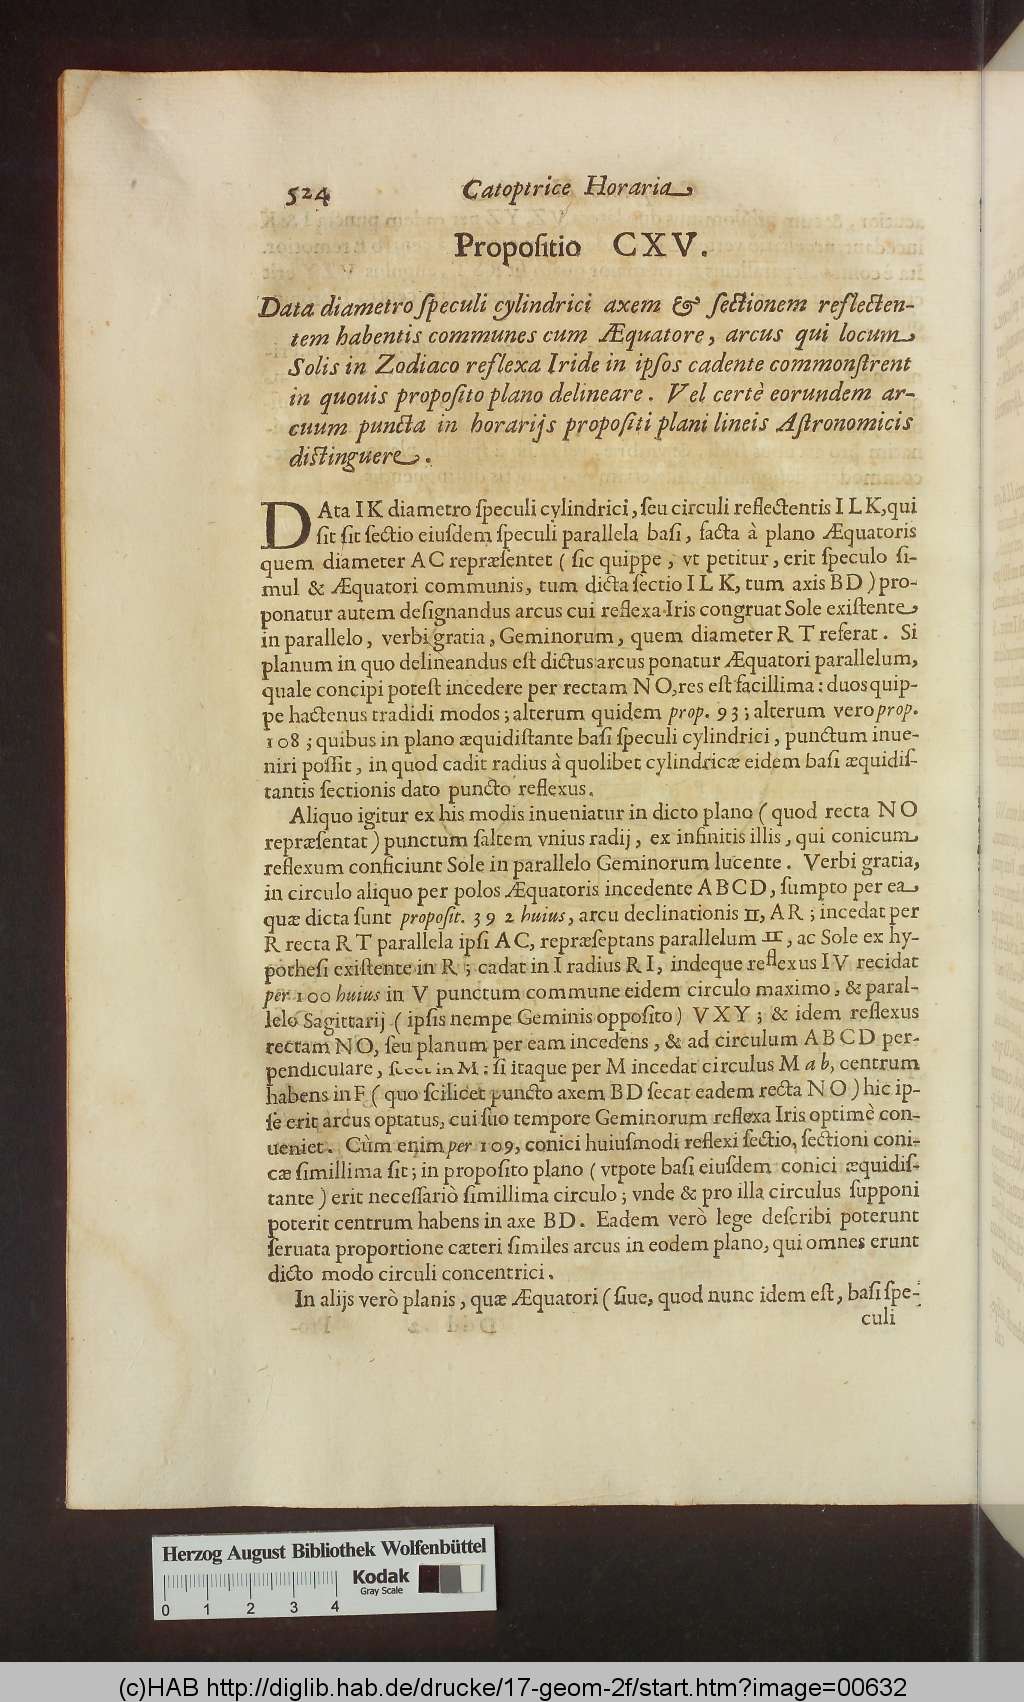 524 Catoptrice Horaria
Propoſitio CXV.
Data diametro ſpeculi cylindrici axem & ſectionem reflecten-
tem habentis communes cum Æquatore, arcus qui locum
Solis in Zodiaco reflexa Iride in ipſos cadente commonſtrent
in quouis propoſito plano delineare. Vel certè eorundem ar-
cuum puncta in horarijs propoſiti plani lineis Aſtronomicis
diſtinguere.
DAta I K diametro ſpeculi cylindrici, ſeu circuli reflectentis I L K, qui
ſit ſit ſectio eiuſdem ſpeculi parallela baſi, facta à plano Æquatoris
quem diameter A C repræſentet ( ſic quippe, vt petitur, erit ſpeculo ſi-
mul & Æquatori communis, tum dicta ſectio I L K, tum axis B D ) pro-
ponatur autem deſignandus arcus cui reflexa Iris congruat Sole exiſtente
in parallelo, verbi gratia, Geminorum, quem diameter R T referat. Si
planum in quo delineandus eſt dictus arcus ponatur Æquatori parallelum,
quale concipi poteſt incedere per rectam N O, res eſt facillima: duos quip-
pe hactenus tradidi modos; alterum quidem prop. 93; alterum vero prop.
108; quibus in plano æquidiſtante baſi ſpeculi cylindrici, punctum inue-
niri poſſit, in quod cadit radius à quolibet cylindricæ eidem baſi æquidiſ-
tantis ſectionis dato puncto reflexus.
Aliquo igitur ex his modis inueniatur in dicto plano ( quod recta N O
repræſentat ) punctum ſaltem vnius radij, ex infinitis illis, qui conicum
reflexum conficiunt Sole in parallelo Geminorum lucente. Verbi gratia,
in circulo aliquo per polos Æquatoris incedente A B C D, ſumpto per ea
quæ dicta ſunt propoſit. 39 2 huius, arcu declinationis ♊, A R; incedat per
R recta R T parallela ipſi A C, repræſeptans parallelum ♊, ac Sole ex hy-
potheſi exiſtente in R; cadat in I radius R I, indeque reflexus I V recidat
per 100 huius in V punctum commune eidem circulo maximo, & paral-
lelo Sagittarij ( ipſis nempe Geminis oppoſito ) V X Y; & idem reflexus
rectam N O, ſeu planum per eam incedens, & ad circulum A B C D per-
pendiculare, in M: ſi itaque per M incedat circulus M a b, centrum
habens in F ( quo ſcilicet puncto axem B D ſecat eadem recta N O ) hic ip-
ſe erit arcus optatus, cui ſuo tempore Geminorum reflexa Iris optimè con-
ueniet. Cùm enim per 109, conici huiuſmodi reflexi ſectio, ſectioni coni-
cæ ſimillima ſit; in propoſito plano ( vtpote baſi eiuſdem conici æquidiſ-
tante ) erit neceſſariò ſimillima circulo; vnde & pro illa circulus ſupponi
poterit centrum habens in axe B D. Eadem verò lege deſcribi poterunt
ſeruata proportione cæteri ſimiles arcus in eodem plano, qui omnes erunt
dicto modo circuli concentrici.
In alijs verò planis, quæ Æquatori ( ſiue, quod nunc idem eſt, baſi ſpe-
culi
Herzog August Bibliothek Wolfenbüttel
Kodak
Gray Scale
0 1 2 3 4
(c)HAB http://diglib.hab.de/drucke/17-geom-2f/start.htm?image=00632